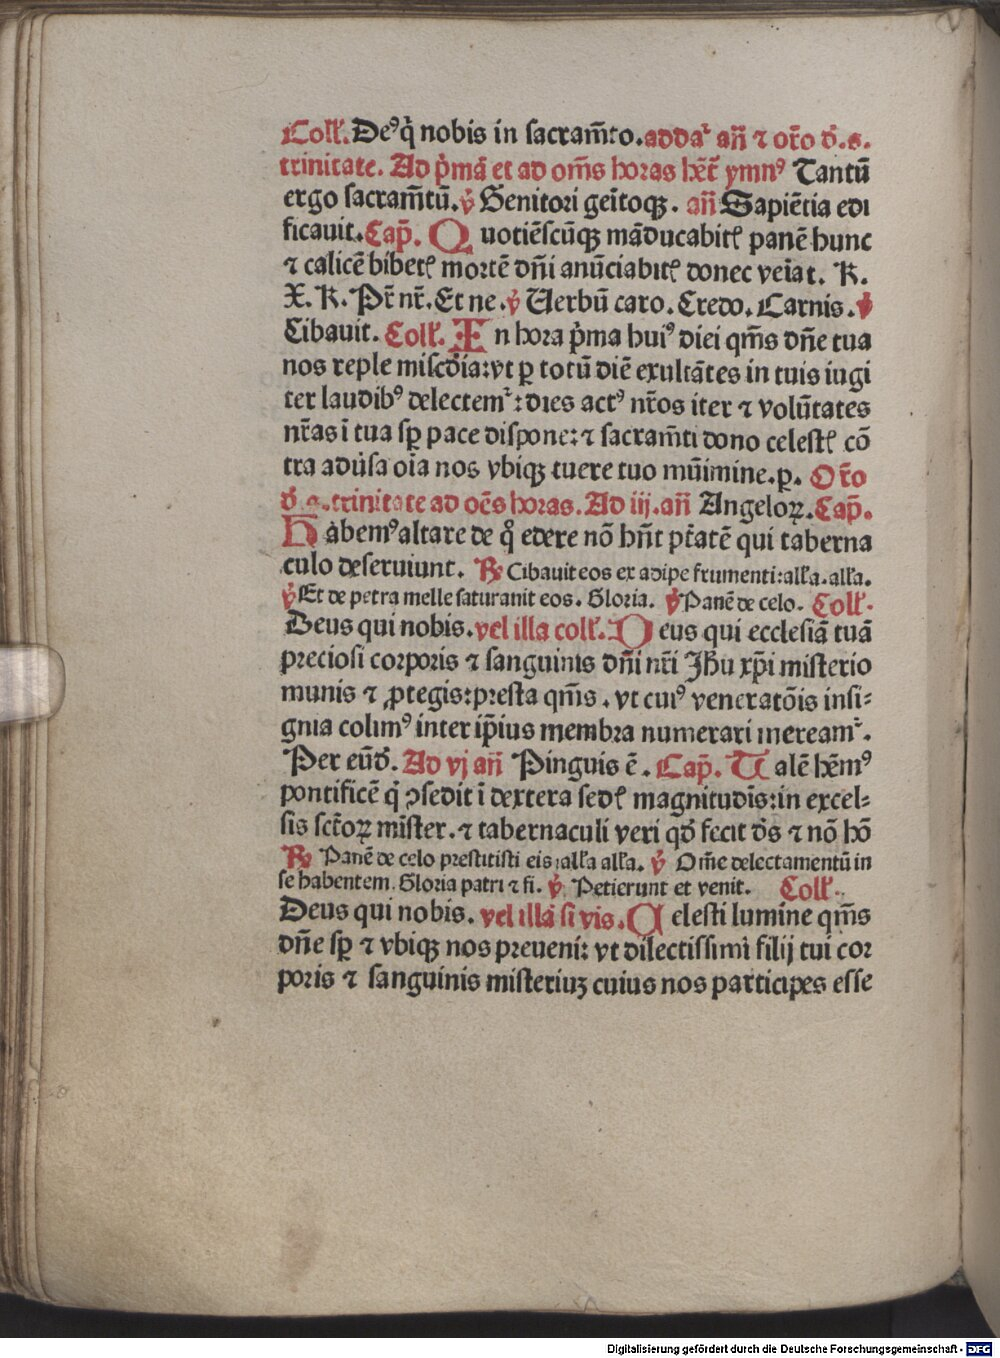 Coll̄. Deꝰ q̇ nobis in sacram̄to. addaᷣ an̄ ⁊ or̄o d̄. s.
trinitate. Ad p̍mā et ad om̄s horas hēt ymnꝰ Tantū
ergo sacram̄tū. v̄ Genitori gen̄toqꝫ. an̄ Sapiētia edi
ficavit. Cap̄. Quotiēscūqꝫ māducabitꝭ panē hunc
⁊ calicē bibetꝭ mortē dn̄i anūciabitꝭ donec ven̄at. R.
X. R. Pr̄ nr̄. Et ne. v̄ Uerbū caro. Credo. Carnis. v̄
Cibauit. Coll̄. In hora p̍ma huiꝰ diei qm̄s dn̄e tua
nos reple mis̄cdia: vt ꝑ totū diē exultātes in tuis iugi
ter laudibꝰ delectemᷣ: dies actꝰ nr̄os iter ⁊ volūtates
nr̄as ī tua sꝑ pace dispone: ⁊ sacram̄ti dono celestꝭ cō
tra adu̍sa oīa nos vbiqꝫ tuere tuo mūimine. ꝑ. Or̄o
d̄ s. trinitate ad oēs horas. Ad iij. an̄ Angeloꝝ. Cap̄.
Habemꝰ altare de q° edere nō hn̄t pt̄atē qui taberna
culo deseruiunt. ℞ Cibauit eos ex adipe frumenti: all̄a. all̄a.
v̄ Et de petra melle saturauit eos. Gloria. v̄ Panē de celo. Coll̄.
Deus qui nobis. vel illa coll̄. Deus qui ecclesiā tuā
preciosi corporis ⁊ sanguinis dn̄i nr̄i Jh̄u xp̄i misterio
munis ⁊ ꝓtegis: presta qm̄s. vt cuiꝰ veneratōis insi⸗
gnia colimꝰ inter ip̄ius membra numerari mereamᷣ.
Per eūd̄. Ad vj an̄ Pinguis ē. Cap̄. Talē hēmꝰ
pontificē q̇ ꝯsedit ī dextera sedꝭ magnitudīs: in excel⸗
sis sc̄toꝝ mīster. ⁊ tabernaculi veri qd̄ fecit d̄s ⁊ nō hō
℞ Panē de celo prestitisti eis: all̄a all̄a. v̄ Om̄e delectamentū in
se habentem. Gloria patri ⁊ fi. v̄ Petierunt et venit. Coll̄.
Deus qui nobis. vel illā si vis. Celesti lumine qm̄s
dn̄e sꝑ ⁊ vbiqꝫ nos preueni: vt dilectissimi filij tui cor
poris ⁊ sanguinis misteriuꝫ cuius nos participes esse
Digitalisierung gefördert durch die Deutsche Forschungsgemeinschaft - DFG